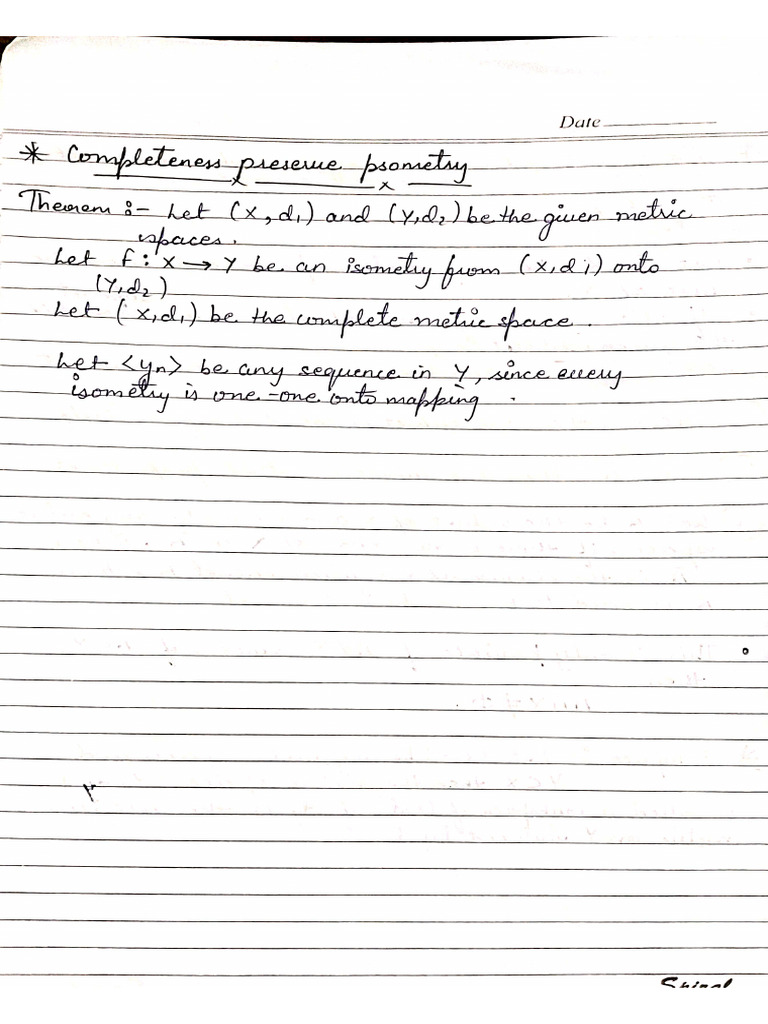 Date
* Completeness preserve psometry
Theorem :- Let (X, d₁) and (Y, d₂) be the given metric
spaces.
Let f : X → Y be an isometry from (X, d₁) onto
(Y, d₂)
Let (X, d₁) be the complete metric space.
Let <yₙ> be any sequence in Y, since every
isometry is one-one onto mapping.